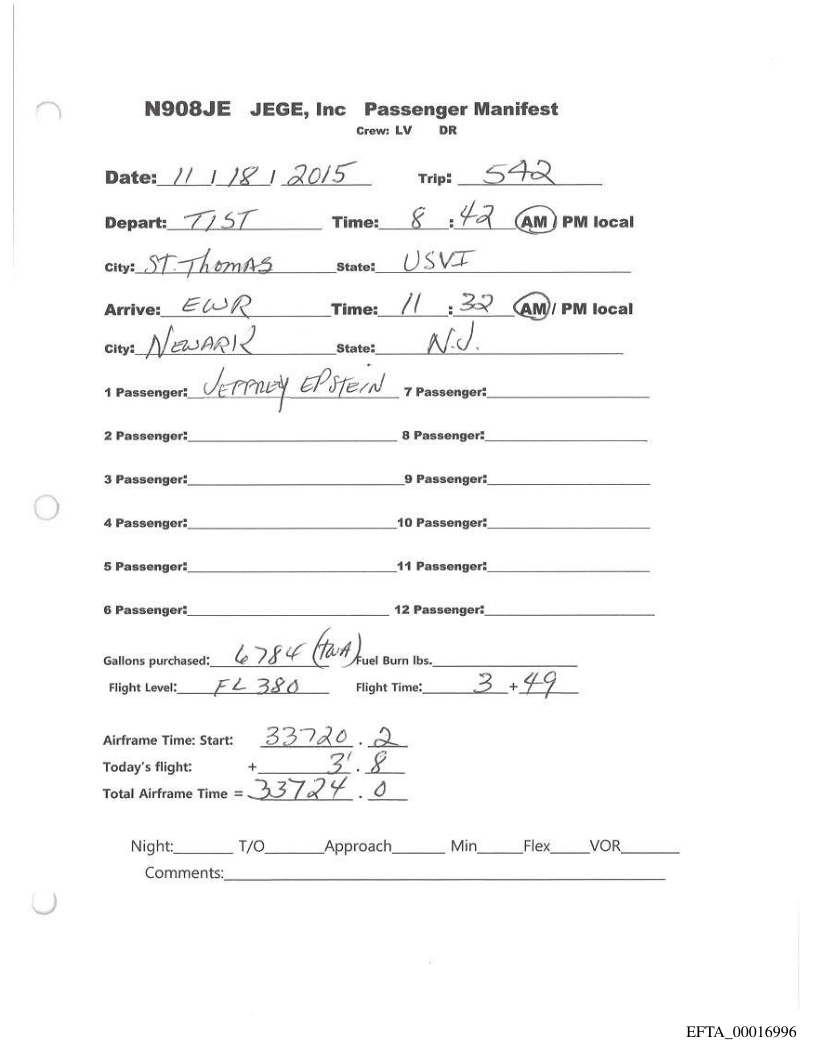 N908JE JEGE, Inc Passenger Manifest
Crew: LV DR
Date: 11 / 18 / 2015 Trip: 542
Depart: TIST Time: 8 : 42 AM / PM local
City: St. Thomas State: USVI
Arrive: EWR Time: 11 : 32 AM / PM local
City: Newark State: N.J.
1 Passenger: Jeffrey Epstein 7 Passenger:
2 Passenger: 8 Passenger:
3 Passenger: 9 Passenger:
4 Passenger: 10 Passenger:
5 Passenger: 11 Passenger:
6 Passenger: 12 Passenger:
Gallons purchased: 6784 Fuel Burn lbs.
Flight Level: FL 380 Flight Time: 3 + 49
Airframe Time: Start: 33720 . 2
Today's flight: + 3 . 8
Total Airframe Time = 33724 . 0
Night: T/O Approach Min Flex VOR
Comments:
EFTA_00016996